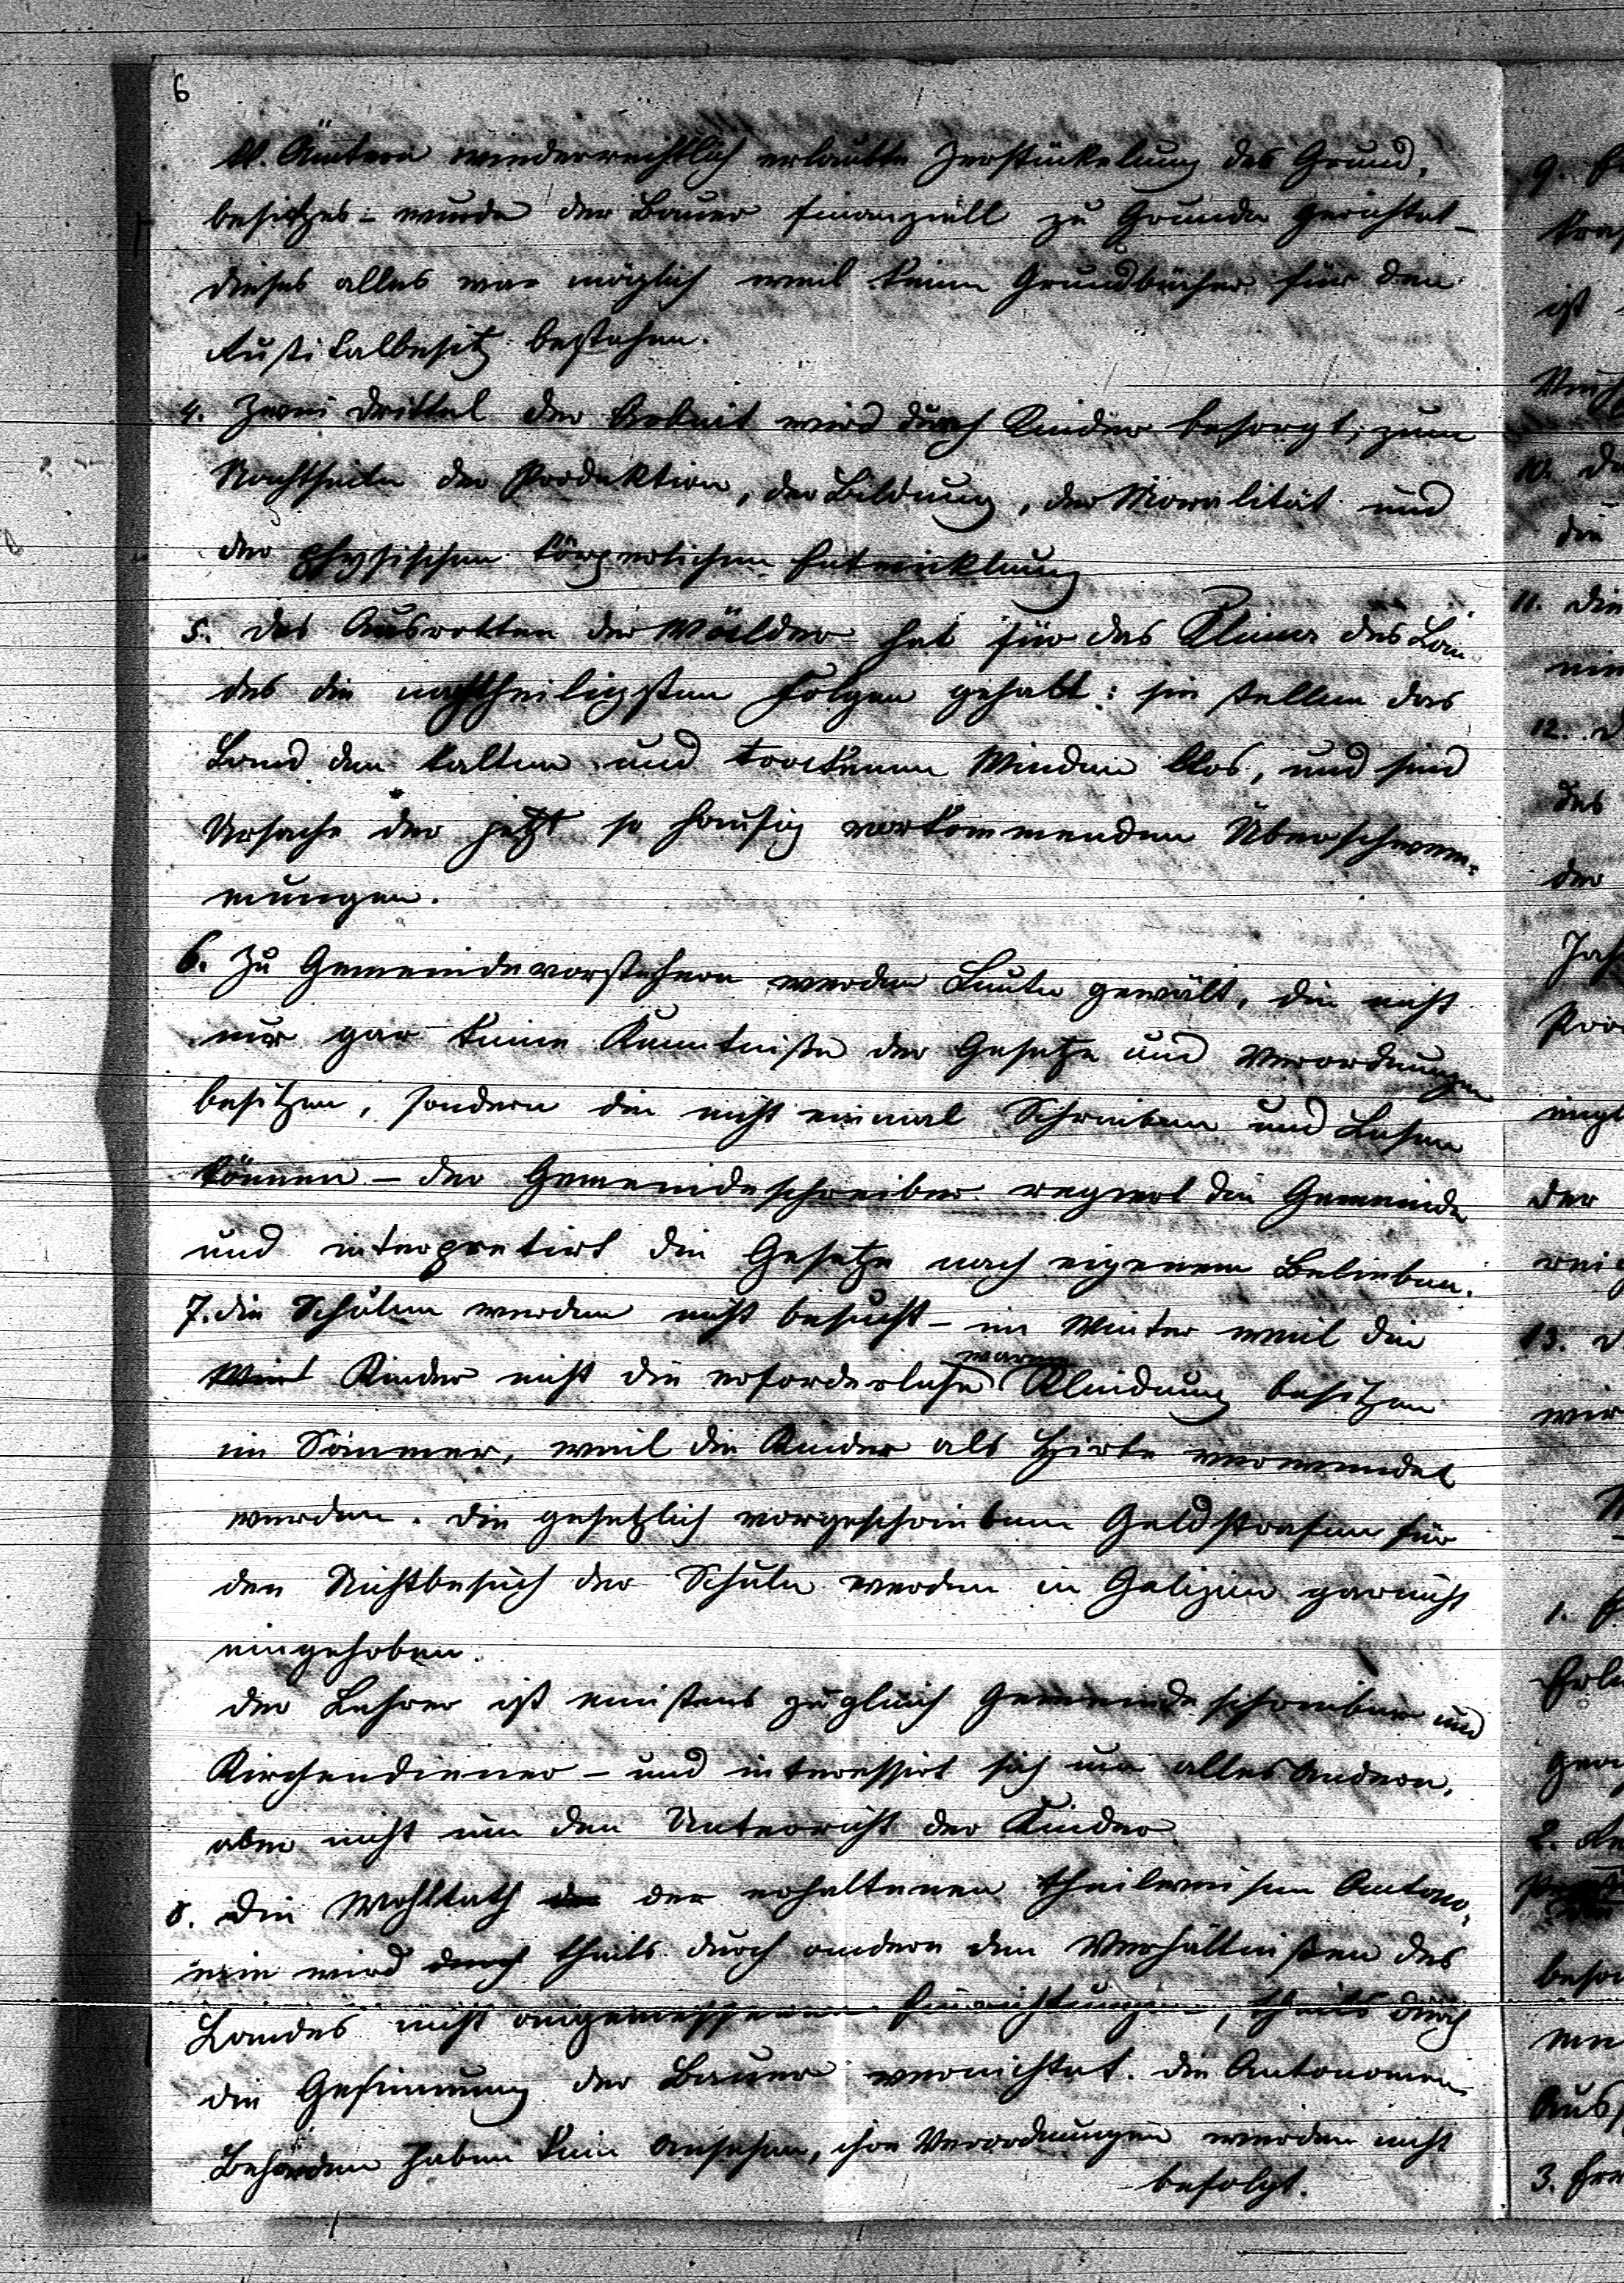 6
Ämtern wiederrechtlich erlaubte Zerstückelung des Grund-
besitzes - wurde der Bauer finanziell zu Grunde gerichtet -
dieses alles war möglich weil keine Grundbücher für den
Rustikalbesitz bestehen.
4. Zwei Drittel der Arbeit wird durch Kinder besorgt, zum
Nachtheile der Produktion, der Bildung, der Moralität und
der physischen körperlichen Entwicklung
5. Das Ausrotten der Wälder hat für das Klima des Lan
des die nachtheiligsten Folgen gehabt: sie stellen das
Land den kalten und trockenen Winden blos, und sind
Ursache der jetzt so häufig vorkommenden Überschwem-
mungen.
6. Zu Gemeindevorstehern werden Leute gewält, die nicht
nur gar keine Kenntniße der Gesetze und Verordnungen
besitzen, sondern die nicht einmal Schreiben und Lesen
können - der Gemeindeschreiber regiert die Gemeinde
und interpretirt die Gesetze nach eigenem Belieben.
7. die Schulen werden nicht besucht - im Winter weil die
warme
Kinder nicht die erforderliche Kleidung besitzen
im Sommer, weil die Kinder als Hirte verwendet
werden. Die gesetzlich vorgeschriebenen Geldstrafen für
den Nichtbesuch der Schule werden in Galizien garnicht
eingehoben.
der Lehrer ist meistens zugleich Gemeindeschreiber und
Kirchendiener - und interessirt sich um alles Andere,
aber nicht um den Unterricht der Kinder
8. Die Wohltath der erhaltenen theilweisen Autono-
mie wird durch theils durch andere den Verhältnißen des
Landes nicht angemessenen Einrichtungen, theils durch
die Gesinnung der Bauer vernichtet. die Autonomen
Behörden haben kein Ansehen, ihre Verordnungen werden nicht
befolgt.
9.
ist
10. D
die
11. Die
12. D
des
der
Jah
der
13. D
1.
2.
3.